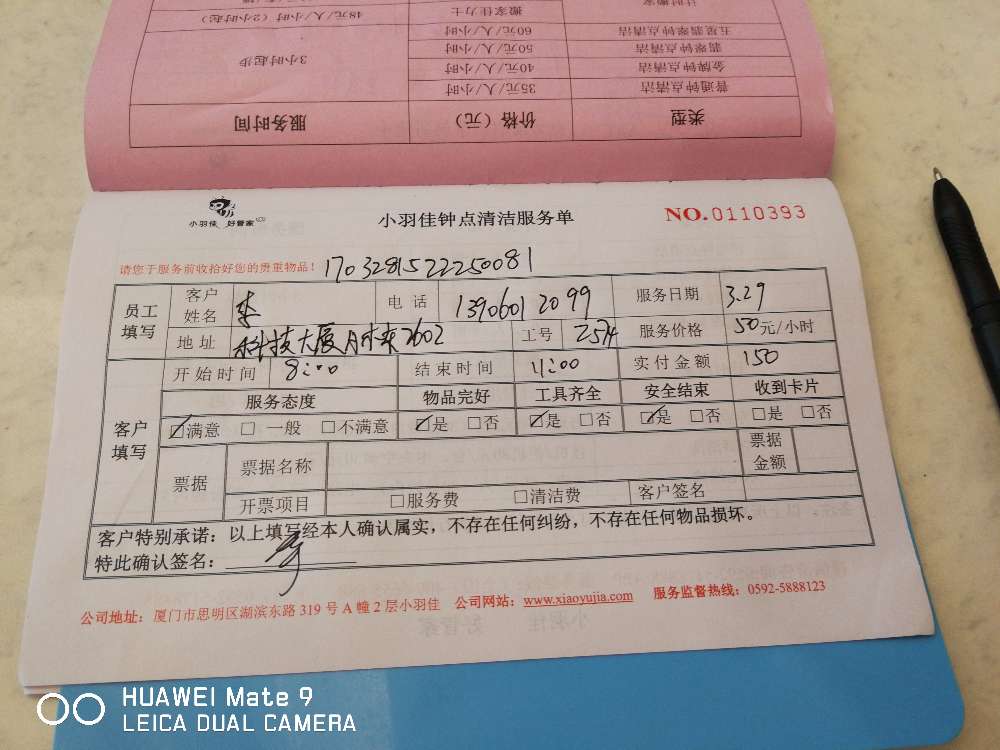 计时搬家 搬家佳力士 48元/人/小时（2小时起）
五星翡翠钟点清洁 60元/人/小时
翡翠钟点清洁 50元/人/小时
金牌钟点清洁 40元/人/小时 3小时起步
普通钟点清洁 35元/人/小时
类型 价格（元） 服务时间
小羽佳 好管家
小羽佳钟点清洁服务单
NO.0110393
请您于服务前收拾好您的贵重物品！ 1703281522250081
员工填写 客户姓名 李 电话 13906012099 服务日期 3.29
地址 科技大厦 2602 工号 2574 服务价格 50元/小时
开始时间 8:00 结束时间 11:00 实付金额 150
客户填写 服务态度 物品完好 工具齐全 安全结束 收到卡片
☑满意 □一般 □不满意 ☑是 □否 ☑是 □否 ☑是 □否 □是 □否
票据 票据名称 票据金额
开票项目 □服务费 □清洁费 客户签名
客户特别承诺：以上填写经本人确认属实，不存在任何纠纷，不存在任何物品损坏。
特此确认签名：
公司地址：厦门市思明区湖滨东路319号A幢2层小羽佳 公司网站：www.xiaoyujia.com 服务监督热线：0592-5888123
HUAWEI Mate 9
LEICA DUAL CAMERA